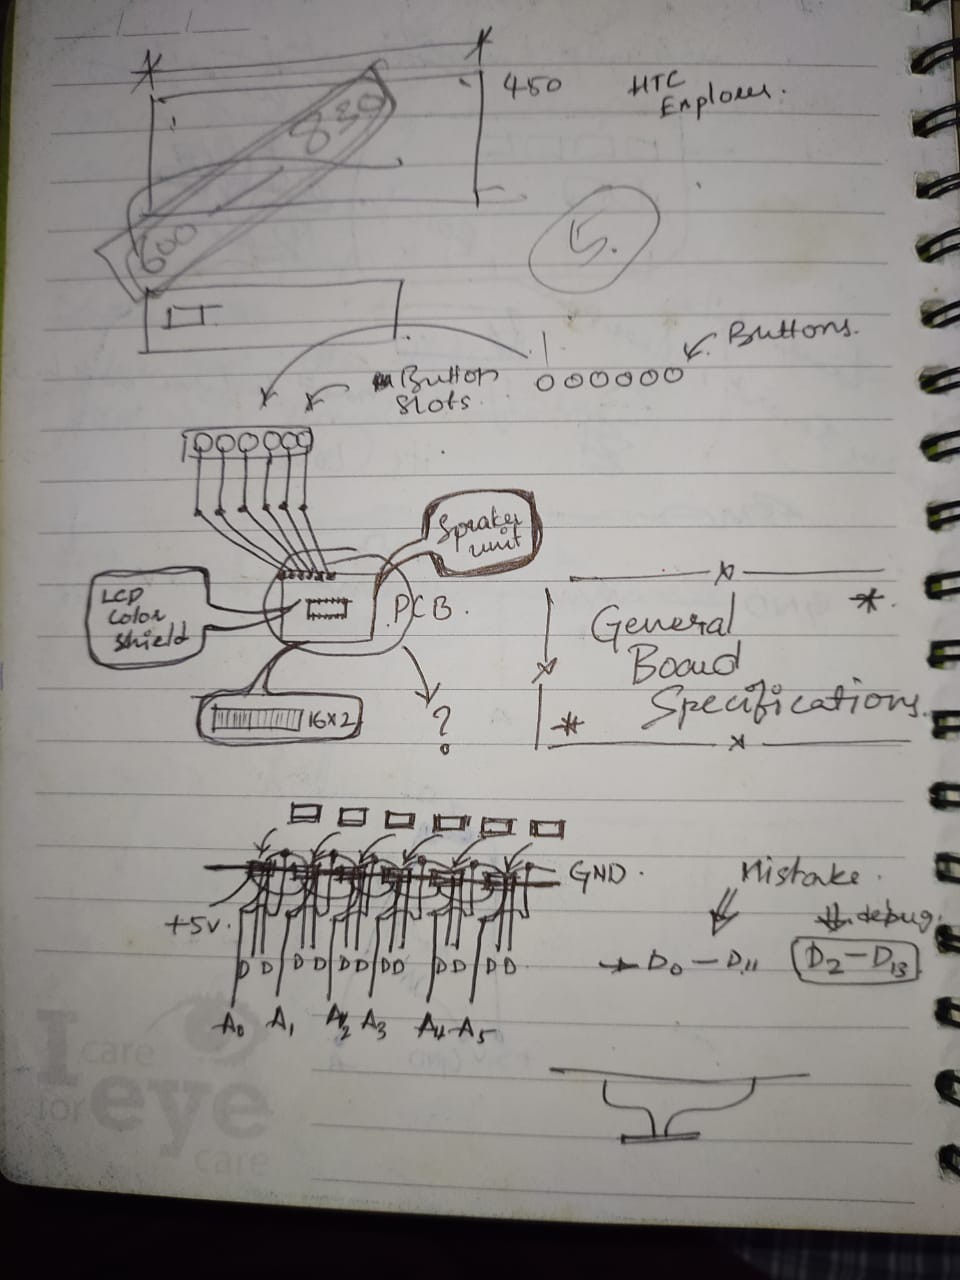 450
HTC
Explorer.
830
600
5.
Buttons.
Button
Slots.
Speaker
unit
LCD
Color
Shield
PCB.
General
Board
Specifications.
16x2
?
GND.
Mistake.
+5v.
debug.
D D D D D D D D D D D D
D0 - D11
D2 - D13
A0 A1 A2 A3 A4 A5
I care
for eye
care